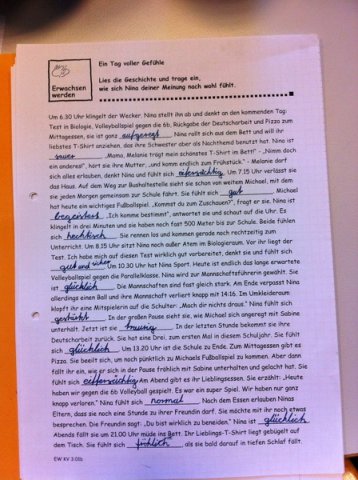 Erwachsen
werden
Ein Tag voller Gefühle
Lies die Geschichte und trage ein,
wie sich Nina deiner Meinung nach wohl fühlt.
Um 6.30 Uhr klingelt der Wecker. Nina stellt ihn ab und denkt an den kommenden Tag:
Test in Biologie, Volleyballspiel gegen die 6b, Rückgabe der Deutscharbeit und Pizza zum
Mittagessen, sie ist ganz aufgeregt. Nina rollt sich aus dem Bett und will ihr
liebstes T-Shirt anziehen, das ihre Schwester aber als Nachthemd benutzt hat. Nina ist
sauer. „Mama, Melanie trägt mein schönstes T-Shirt im Bett!" - „Nimm doch
ein anderes!", hört sie ihre Mutter, „und komm endlich zum Frühstück." - Melanie darf
sich alles erlauben, denkt Nina und fühlt sich eifersüchtig. Um 7.15 Uhr verlässt sie
das Haus. Auf dem Weg zur Bushaltestelle sieht sie schon von weitem Michael, mit dem
sie jeden Morgen gemeinsam zur Schule fährt. Sie fühlt sich gut. Michael
hat heute ein wichtiges Fußballspiel. „Kommst du zum Zuschauen?", fragt er sie. Nina ist
begeistert. „Ich komme bestimmt", antwortet sie und schaut auf die Uhr. Es
klingelt in drei Minuten und sie haben noch fast 500 Meter bis zur Schule. Beide fühlen
sich hecktisch. Sie rennen los und kommen gerade noch rechtzeitig zum
Unterricht. Um 8.15 Uhr sitzt Nina noch außer Atem im Biologieraum. Vor ihr liegt der
Test. Ich habe mich auf diesen Test wirklich gut vorbereitet, denkt sie und fühlt sich
gut und sicher. Um 10.30 Uhr hat Nina Sport. Heute ist endlich das lange erwartete
Volleyballspiel gegen die Parallelklasse. Nina wird zur Mannschaftsführerin gewählt. Sie
ist glücklich. Die Mannschaften sind fast gleich stark. Am Ende verpasst Nina
allerdings einen Ball und ihre Mannschaft verliert knapp mit 14:16. Im Umkleideraum
klopft ihr eine Mitspielerin auf die Schulter: „Mach dir nichts draus." Nina fühlt sich
gestärkt. In der großen Pause sieht sie, wie Michael sich angeregt mit Sabine
unterhält. Jetzt ist sie traurig. In der letzten Stunde bekommt sie ihre
Deutscharbeit zurück. Sie hat eine Drei, zum ersten Mal in diesem Schuljahr. Sie fühlt
sich glücklich. Um 13.20 Uhr ist die Schule zu Ende. Zum Mittagessen gibt es
Pizza. Sie beeilt sich, um noch pünktlich zu Michaels Fußballspiel zu kommen. Aber dann
fällt ihr ein, wie er sich in der Pause fröhlich mit Sabine unterhalten und gelacht hat. Sie
fühlt sich eifersüchtig. Am Abend gibt es ihr Lieblingsessen. Sie erzählt: „Heute
haben wir gegen die 6b Volleyball gespielt. Es war ein super Spiel. Wir haben nur ganz
knapp verloren." Nina fühlt sich normal. Nach dem Essen erlauben Ninas
Eltern, dass sie noch eine Stunde zu ihrer Freundin darf. Sie möchte mit ihr noch etwas
besprechen. Die Freundin sagt: „Du bist wirklich zu beneiden." Nina ist glücklich.
Abends fällt sie um 21.00 Uhr müde ins Bett. Ihr Lieblings-T-Shirt liegt gebügelt auf
dem Tisch. Sie fühlt sich fröhlich, als sie bald darauf in tiefen Schlaf fällt.
EW KV 3.01b